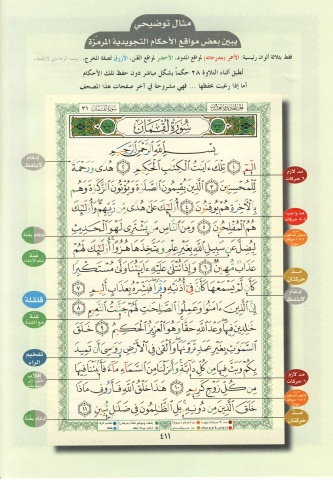 مثال توضيحي
يبين بعض مواقع الأحكام التجويدية المرمّزة
فقط بثلاثة ألوان رئيسية: الأحمر (بتدرجاته) لمواقع المدود، الأخضر لمواقع الغنن، الأزرق لصفة المخرج، بينما الرمادي لا يلفظ.
تطبق أثناء التلاوة ٢٨ حكماً بشكل مباشر دون حفظ تلك الأحكام
أما إذا رغبت بحفظها ... فهي مشروحة في آخر صفحات هذا المصحف
سورة لقمان ٣١
سُورَةُ لُقْمَانَ
بِسْمِ اللَّهِ الرَّحْمَٰنِ الرَّحِيمِ
الٓمٓ ١ تِلْكَ ءَايَٰتُ الْكِتَٰبِ الْحَكِيمِ ٢ هُدًى وَرَحْمَةً
لِّلْمُحْسِنِينَ ٣ الَّذِينَ يُقِيمُونَ الصَّلَوٰةَ وَيُؤْتُونَ الزَّكَوٰةَ وَهُم
بِالْءَاخِرَةِ هُمْ يُوقِنُونَ ٤ أُو۟لَٰٓئِكَ عَلَىٰ هُدًى مِّن رَّبِّهِمْ وَأُو۟لَٰٓئِكَ
هُمُ الْمُفْلِحُونَ ٥ وَمِنَ النَّاسِ مَن يَشْتَرِى لَهْوَ الْحَدِيثِ
لِيُضِلَّ عَن سَبِيلِ اللَّهِ بِغَيْرِ عِلْمٍ وَيَتَّخِذَهَا هُزُوًا أُو۟لَٰٓئِكَ لَهُمْ
عَذَابٌ مُّهِينٌ ٦ وَإِذَا تُتْلَىٰ عَلَيْهِ ءَايَٰتُنَا وَلَّىٰ مُسْتَكْبِرًا
كَأَن لَّمْ يَسْمَعْهَا كَأَنَّ فِىٓ أُذُنَيْهِ وَقْرًا فَبَشِّرْهُ بِعَذَابٍ أَلِيمٍ ٧
إِنَّ الَّذِينَ ءَامَنُوا۟ وَعَمِلُوا۟ الصَّٰلِحَٰتِ لَهُمْ جَنَّٰتُ النَّعِيمِ ٨
خَٰلِدِينَ فِيهَا وَعْدَ اللَّهِ حَقًّا وَهُوَ الْعَزِيزُ الْحَكِيمُ ٩ خَلَقَ
السَّمَٰوَٰتِ بِغَيْرِ عَمَدٍ تَرَوْنَهَا وَأَلْقَىٰ فِى الْأَرْضِ رَوَٰسِىَ أَن تَمِيدَ
بِكُمْ وَبَثَّ فِيهَا مِن كُلِّ دَآبَّةٍ وَأَنزَلْنَا مِنَ السَّمَآءِ مَآءً فَأَنۢبَتْنَا فِيهَا
مِن كُلِّ زَوْجٍ كَرِيمٍ ١٠ هَٰذَا خَلْقُ اللَّهِ فَأَرُونِى مَاذَا
خَلَقَ الَّذِينَ مِن دُونِهِۦ بَلِ الظَّٰلِمُونَ فِى ضَلَٰلٍ مُّبِينٍ ١١
٤١١
مد لازم
٦ حركات
مد واجب
مد
حركتان
مد لازم
٦ حركات
مد
حركتان
إدغام
إدغام بغنة
غنة
قلقلة
غنة
تفخيم
الراء